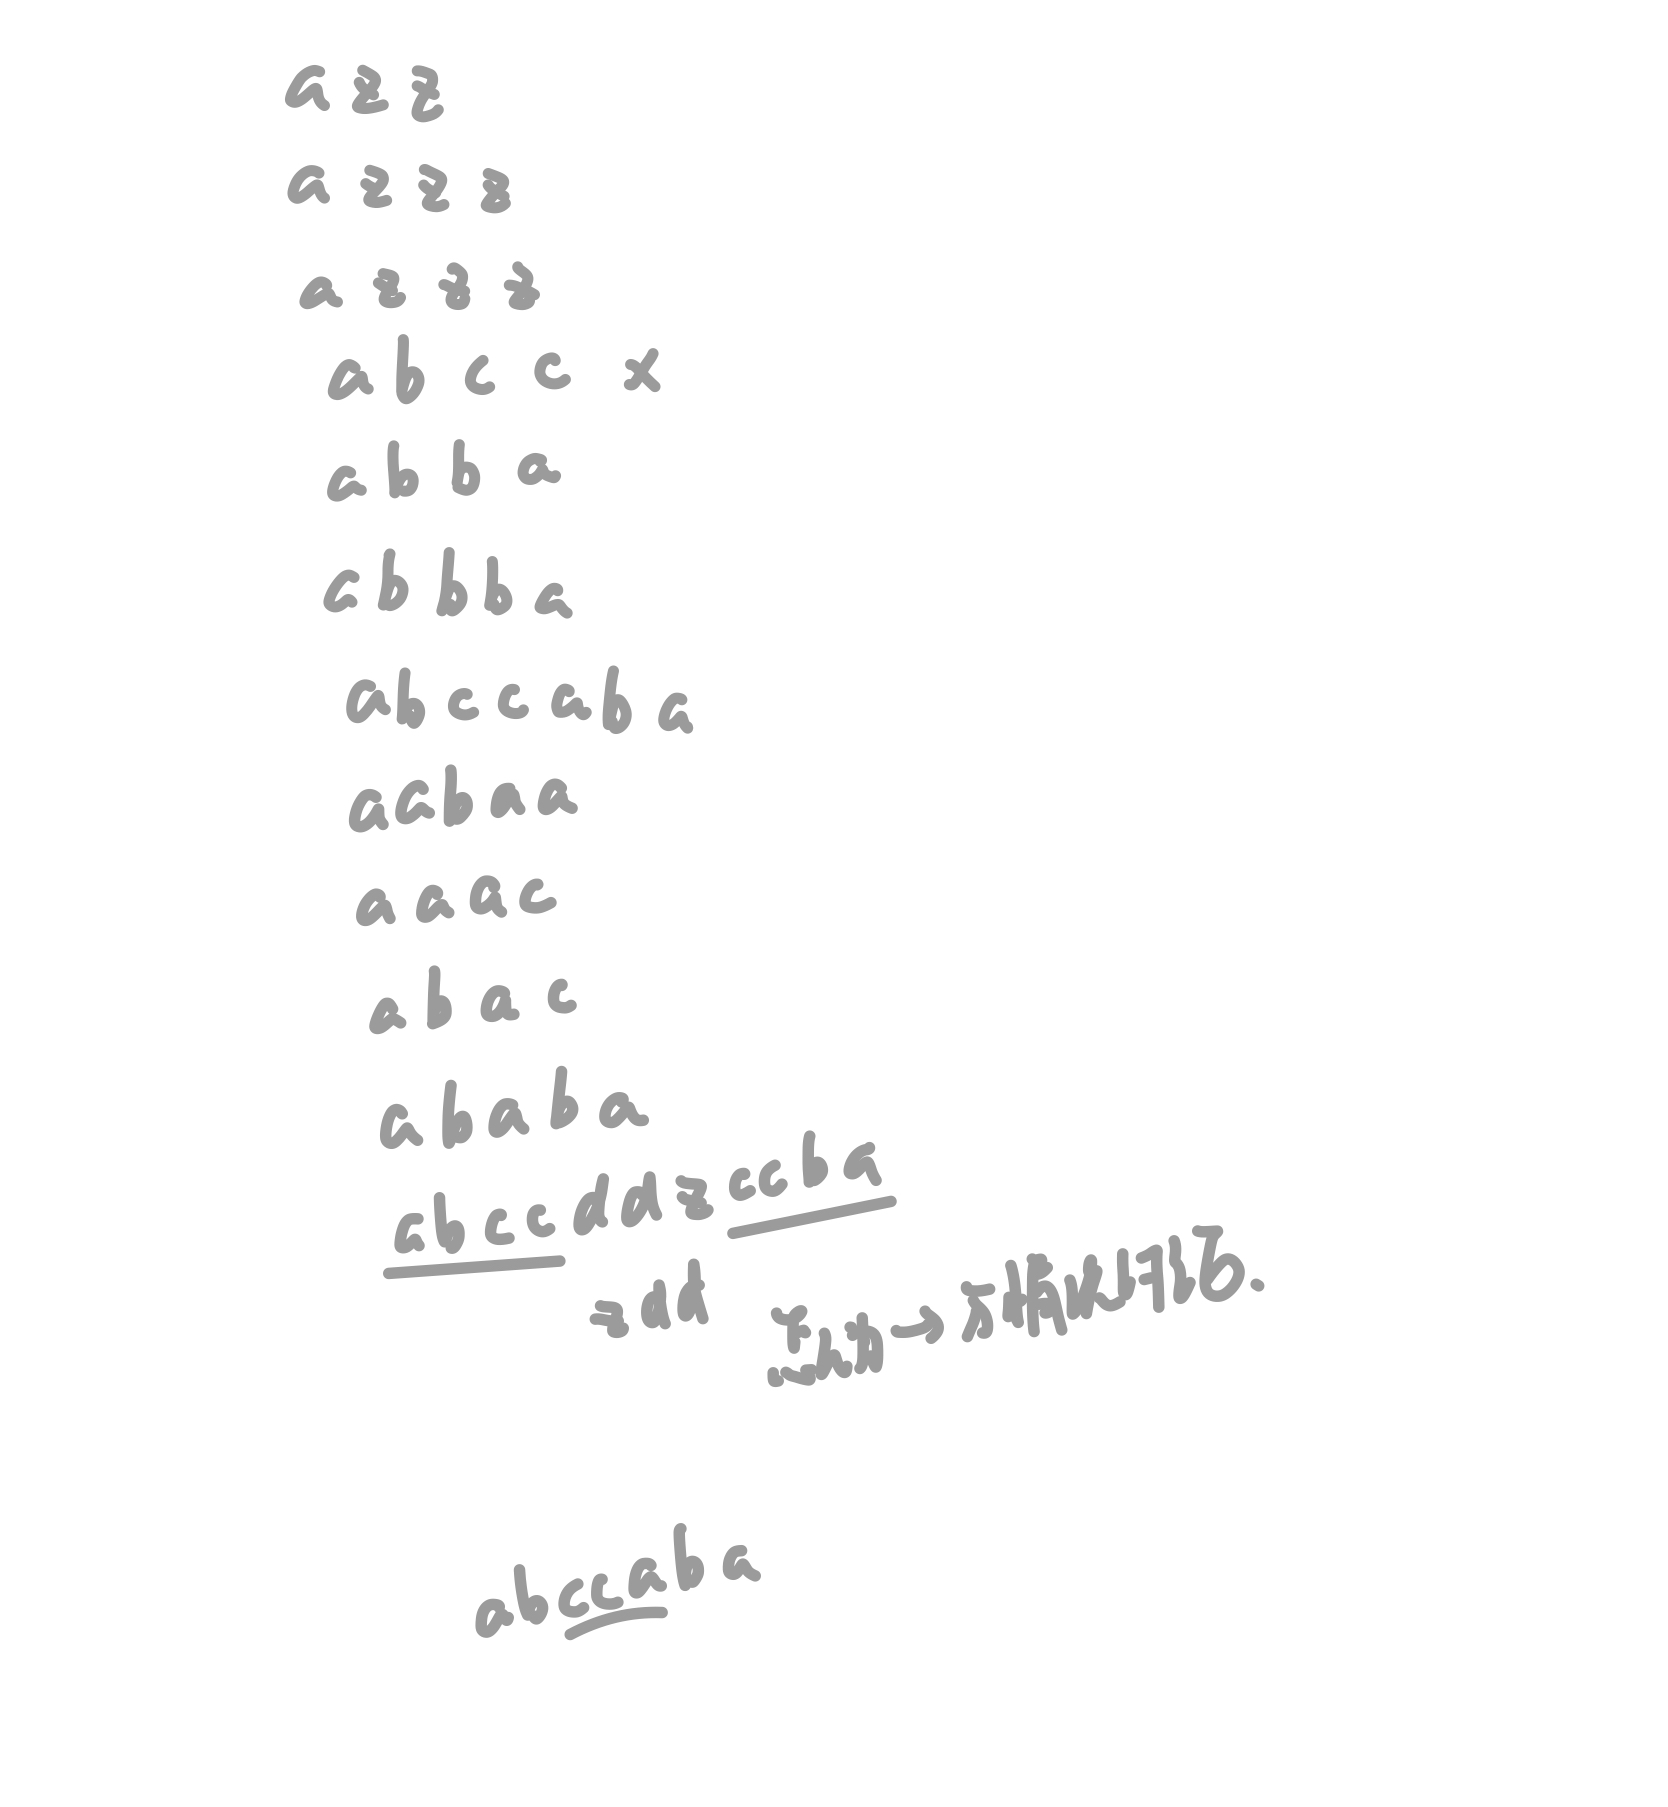 azz
azzz
azzz
abccx
abba
abbba
abccaba
aabaa
aaac
abac
ababa
abccddzccba
zdd
→
abccaba